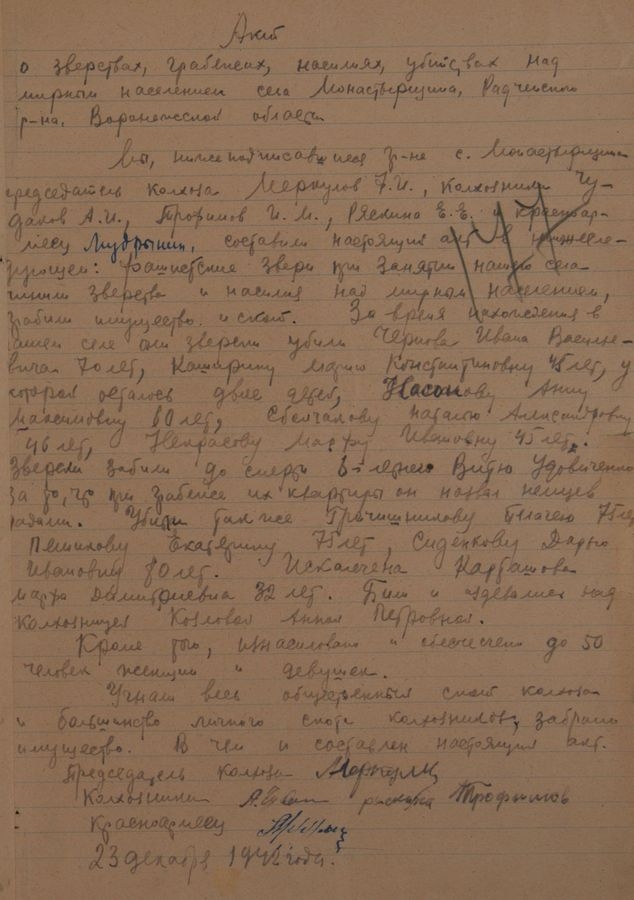 Акт
о зверствах, грабежах, насилиях, убийствах над
мирным населением села Монастырщина, Радченского
р-на, Воронежской области
Мы, нижеподписавшиеся гр-не с. Монастырщина
председатель колхоза Меркулов Ф.И., колхозники Чу-
даков А.И., Трофимов И.М., Ряскина Е.Е. и красноар-
меец Мудрынин, составили настоящий акт в нижесле-
дующем: фашистские звери при занятии нашего села
чинили зверства и насилия над мирным населением,
грабили имущество и скот. За время нахождения в
нашем селе они зверски убили Чернова Ивана Василье-
вича 70 лет, Каширину Марию Константиновну 45 лет, у
которой осталось двое детей, Насонову Анну
Максимовну 60 лет, Наталью Александровну
46 лет, Некрасову Марфу Ивановну 45 лет.
Зверски забили до смерти летнего Витю Удовиченко
за то, что при грабеже их квартиры он назвал немцев
гадами. Убили также 75 лет
Екатерину 75 лет, Сиденкову Дарью
Ивановну 80 лет. Искалечена Карташова
Марфа Димитриевна 32 лет. Били и издевались над
колхозницей Козловой Анной Петровной.
Кроме того, изнасиловано и обесчещено до 50
человек женщин и девушек.
Угнали весь общественный скот колхоза
и большинство личного скота колхозников, забрали
имущество. В чем и составлен настоящий акт.
Председатель колхоза Меркулов
Колхозники Ряскина Трофимов
Красноармеец
23 декабря 1942 года.